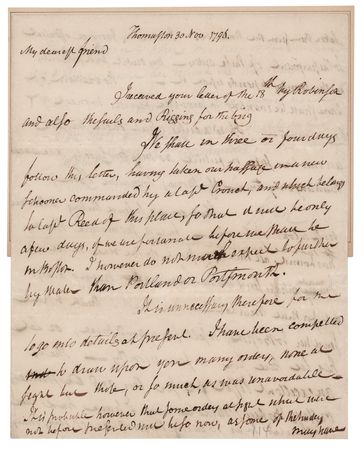 Thomaston 30 Nov. 1796.
My dearest friend
I received your letter of the 18th by Robinson
and also the sails and Rigging for the
We shall in three or four days
follow this letter, having taken our passage in a new
schooner commanded by a Capt and which belongs
to Capt Reed of this place, so that it will be only
a few days, if we are fortunate before we shall be
in Boston. I however do not much expect to further
by water than Portland or Portsmouth.
It is unnecessary therefore for me
to go into details at present. I have been compelled
to draw upon you many orders, none at
sight but those, or so much, as was unavoidable
It is probable however that some orders at sight which were
not before presented will be so now, as some of the
may have